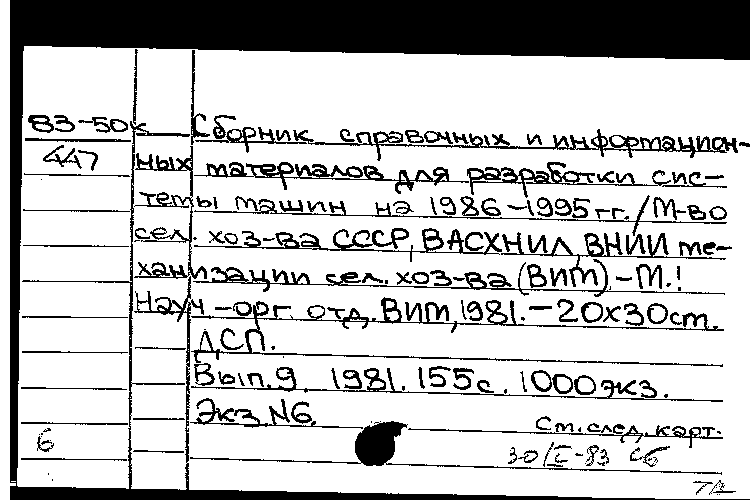 83-50к Сборник справочных и информацион-
447 ных материалов для разработки сис-
темы машин на 1986-1995 гг. / М-во
сел. хоз-ва СССР, ВАСХНИЛ, ВНИИ ме-
ханизации сел. хоз-ва (ВИМ) - М.:
Науч.-орг. отд. ВИМ, 1981. - 20х30см.
ДСП.
Вып. 9. 1981. 155 с. 1000 экз.
Экз. №6.
См. след. карт.
6 30/I-83 сб